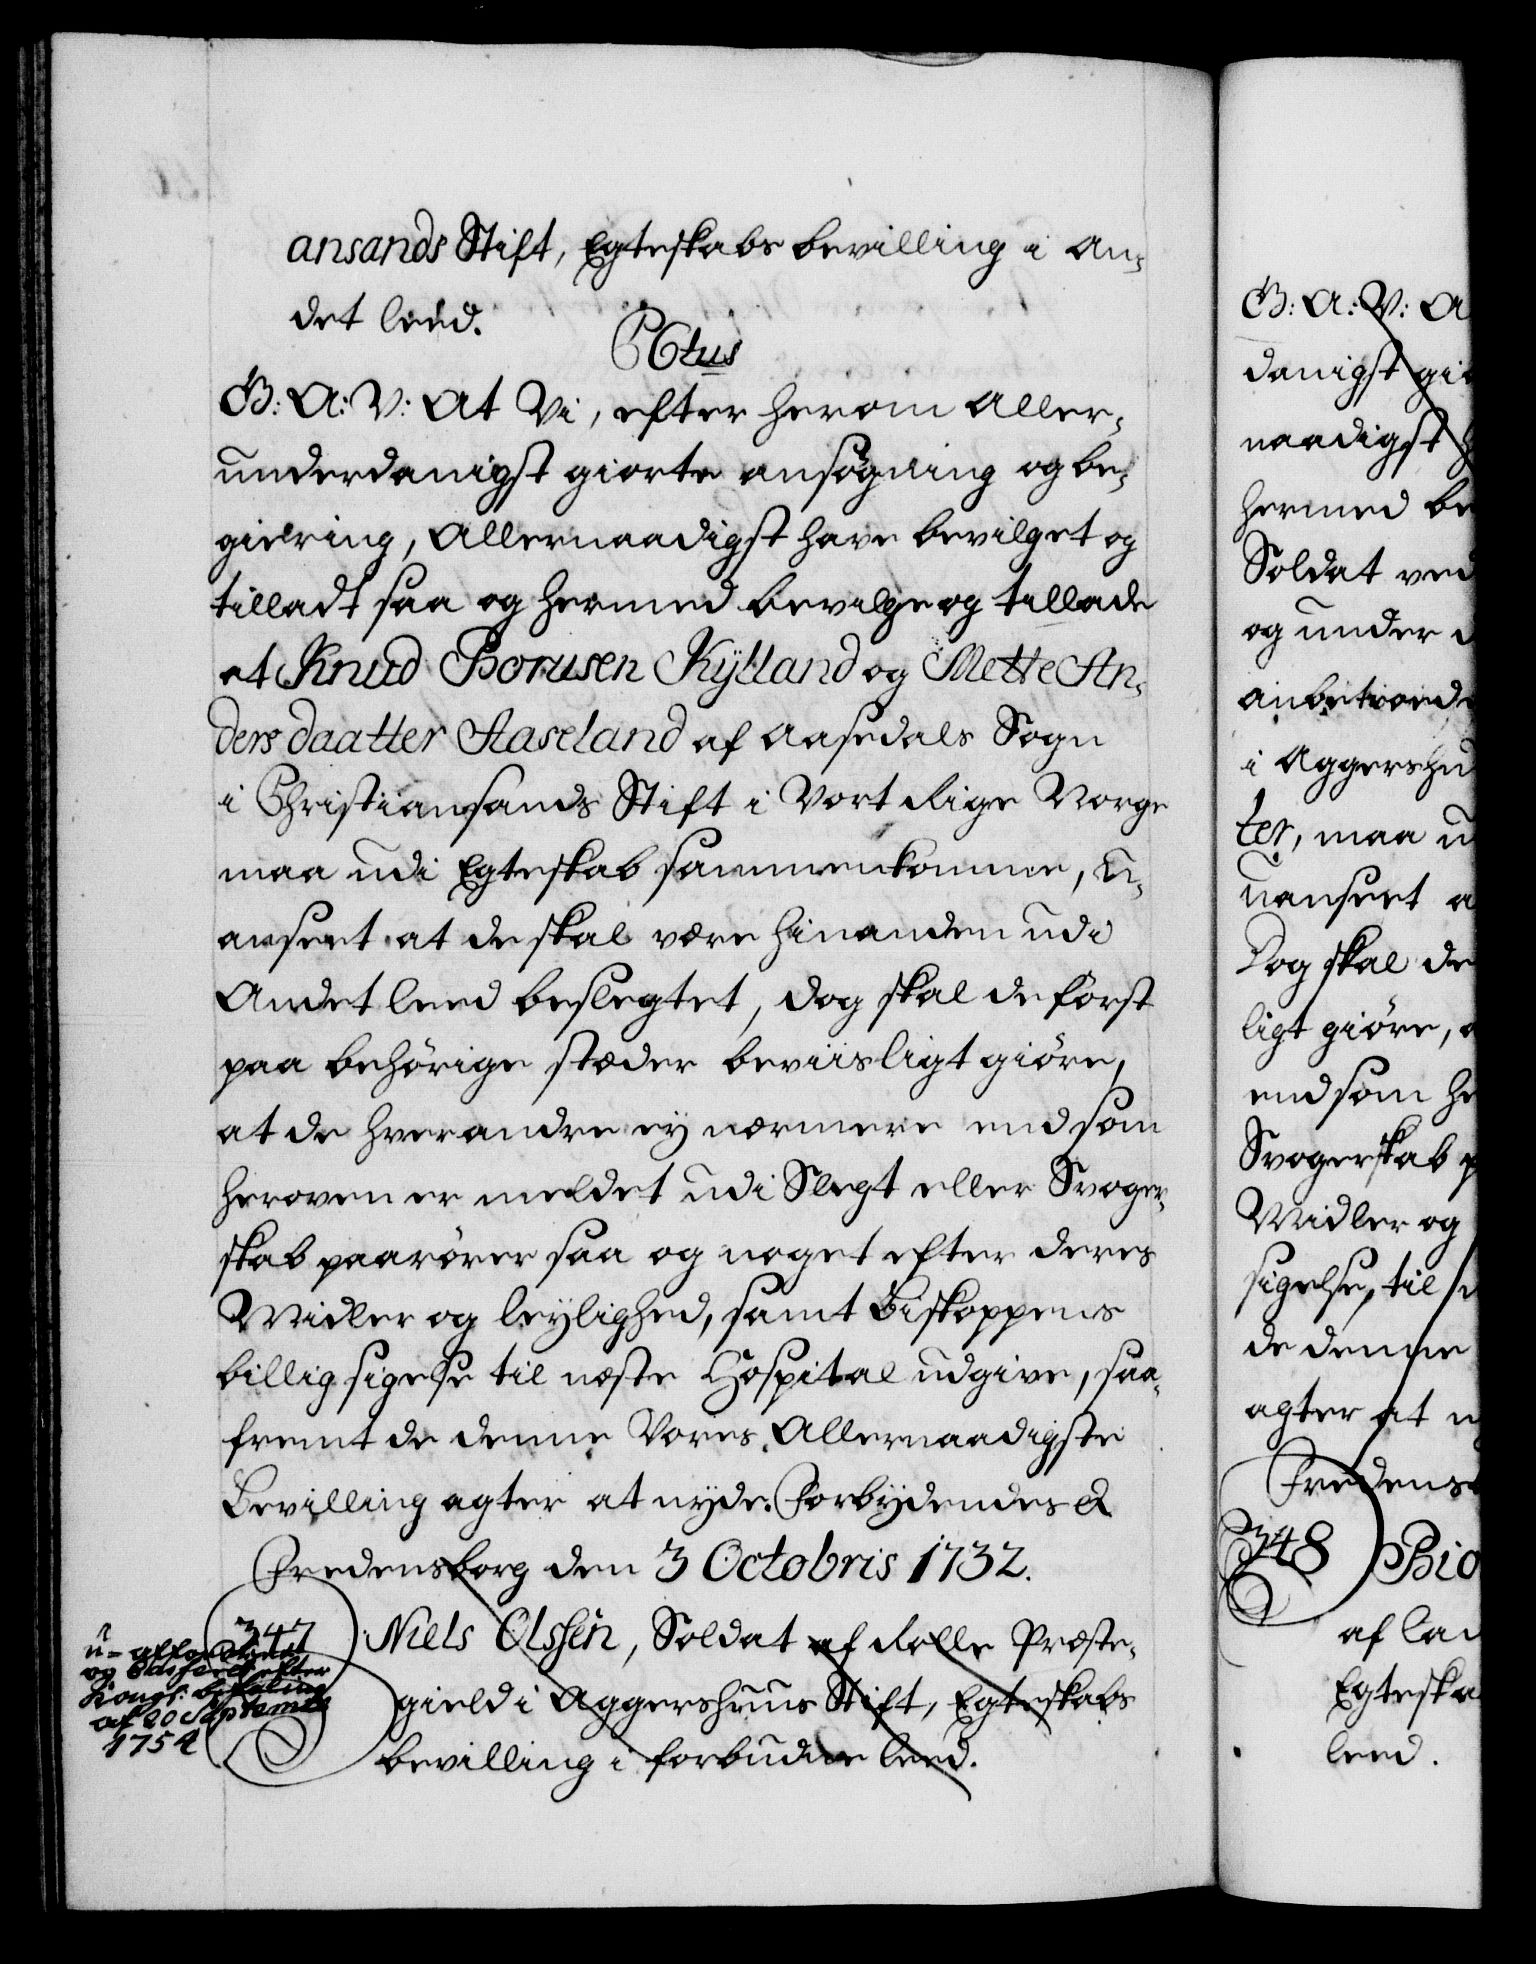 ansands Stift, Egteskabs bevilling i An-
det leed.
C6tus
G: A: V: At Vi, efter herom Aller-
underdanigst giorte ansøgning og be-
giering, Allernaadigst have bevilget og
tilladt saa og hermed bevilge og tillade
at Knud Borusen Kÿlland og Mette An-
dersdaatter Aaseland af Aasedals Sogn
i Christiansands Stift i Vort Rige Norge
maa udi Egteskab sammenkomme, u-
anseet at de skal være hinanden udi
Andet leed beslegtet, dog skal de først
paa behörige stæder beviisligt giöre,
at de hverandre eÿ nærmere end som
heroven er meldet udi Slegt eller Svoger-
skab paarører saa og noget efter deres
Midler og leÿlighed, samt Biskoppens
billigsigelse til næste Hospital udgive, saa-
fremt de denne Vores Allernaadigste
Bevilling agter at nÿde. Forbÿdendes &
Fredensborg den 3 Octobris 1732.
347 Niels Olssen, Soldat af Rolle Præste-
gield i Aggershuus Stift, Egteskabs
bevilling i forbudne leed.
u-affordret
og Casseret efter
Kongl: befaling
af 20 Septembr
1754
G: A: V: A
danigst gio
naadigst h
hermed be
Soldat ved
og under
anbetroede
i Aggershu
ter, maa u
uanseet a
Dog skal de
ligt giöre, a
end som he
Svogerskab p
Midler og
sigelse, til
de denne
agter at n
Fredens
348 Bio
af Lau
Egteska
leed.